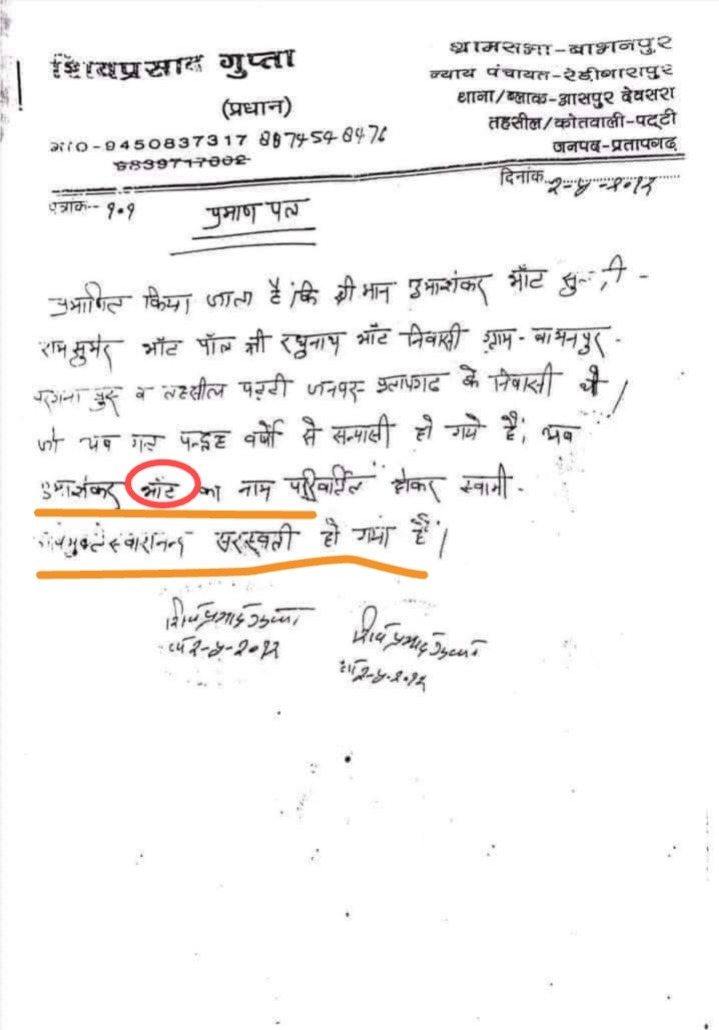 शिवप्रसाद गुप्ता
(प्रधान)
मो0-9450837317 8874548476
9839717002
ग्रामसभा-बाभनपुर
न्याय पंचायत-रेडीगारापुर
थाना/ब्लाक-आसपुर देवसरा
तहसील/कोतवाली-पट्टी
जनपद-प्रतापगढ़
पत्रांक-- १०१
दिनांक २-५-२०१२
प्रमाण पत्र
प्रमाणित किया जाता है कि श्री मान उमाशंकर भाँट
राम सुमेर भाँट पौत्र श्री रघुनाथ भाँट निवासी ग्राम- बाभनपुर-
परगना व तहसील पट्टी जनपद प्रतापगढ के निवासी थे
जो अब गत पन्द्रह वर्षो से सन्यासी हो गये है, अब
उमाशंकर भाँट का नाम परिवर्तित होकर स्वामी-
सरस्वती हो गया है।
शिव प्रसाद गुप्ता
२-५-२०१२
शिव प्रसाद गुप्ता
२-५-२०१२